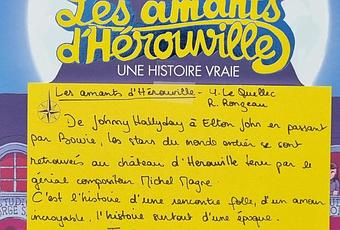 Les amants
d'Hérouville
UNE HISTOIRE VRAIE
Les amants d'Hérouville - Y. Le Quellec
R. Ronzeau
De Johnny Hallyday à Elton John en passant
par Bowie, les stars du monde entier se sont
retrouvées au château d'Herouville tenu par le
génial compositeur Michel Magne.
C'est l'histoire d'une rencontre folle, d'un amour
incroyable, l'histoire surtout d'une époque.